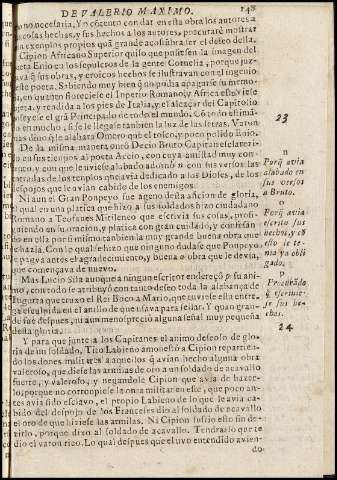 DE VALERIO MAXIMO. 148
no necesaria. Yo contento con dar en esta obra los autores a
cosas hechas, y sus hechos a los autores, procuraré mostrar
exemplos propios quã grande aya sido el deseo della.
Cipion Africano Superior quiso que pusiesen la imagen del
poeta Enio en los sepulcros de la gente Cornelia, porque juz-
gava q̃ sus obras, y eroicos hechos se ilustravan con el ingenio
deste poeta. Sabiendo muy bien q̃ no podia apagarse su memo-
ria, en quanto floreciese el Imperio Romano, y Africa estuviese
y rendida a los pies de Italia, y el alcaçar del Capitolio
poseyese el grã Principado de todo el mundo. Cõ todo estima-
va en mucho, si se le llegase tambien la luz de las letras. Varon
mas dino de le alabara Omero que el tosco, y poco polido Enio.
De la misma manera onró Decio Bruto Capitan esclareci-
do en sus tiempos al poeta Accio, con cuya amistad muy con-
tento, y con que le uviese alabado adornó n con sus versos las
entradas de los templos que avia dedicado a los Dioses, de los
despojos que le avian cabido de los enemigos.
Ni aun el Gran Ponpeyo fue ageno desta aficion de gloria,
el qual en una platica que hizo a sus soldados hizo ciudadano
Romano a Teofanes Mitileneo que escrivia sus cosas, prosi-
guiendo en su oracion, y platica con gran cuidado, y confirman-
do en ella por si mismo tambien la muy grande buena obra que
le hazia. Con lo qual se hizo que ninguno dudase que Ponpeyo,
pagava antes el agradecimiento, y buena obra que le devia,
que començava de nuevo.
Mas Lucio Sila aunque a ningun escritor endereçò p su ani-
mo, con todo se atribuyó con tanto deseo toda la alabança de
Iugurta que truxo el Rei Boco a Mario, que tuviese esta entre-
ga esculpida en el anillo de que usava para sellar. Y quan gran-
de fue despues, ni aun menospreciò alguna señal muy pequeña
desta gloria.
Y para que junte a los Capitanes el animo deseoso de glo-
ria de un soldado, Tito Labieno amonestó a Cipion repartien-
do los dones militares a aquellos q̃ avian hecho alguna obra
valerosa, que diese las armilas de oro a un soldado de acavallo
fuerte, y valeroso, y negandole Cipion que avia de hazer-
lo, porque no corronpiese la onra militar en este, que poco an-
tes avia sido esclavo, el propio Labieno de lo que le avia ca-
bido del despojo de los Franceses dio al soldado de acavallo
el oro de que hiziese las armilas. Ni Cipion sufrio esto sin de-
zirlo, porque dixo al soldado de acavallo. Tendras lo que te
dio el varon rico. Lo qual despues que el uvo entendido avien-
do
23
n
Porq̃ avia
alabado en
sus versos
a Bruto.
Porq̃ avia
escrito sus
hechos, y cõ
esto le te-
nia ya obli
gado.
p
Procurãdo
q̃ escrivie-
se sus he-
chos.
24